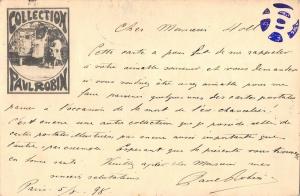 COLLECTION
PAUL ROBIN
Cher Monsieur Holl
Cette carte a pour but de me rappeler
à votre aimable souvenir et vous demander
si vous voulez être assez aimable pour me
faire parvenir quelques unes des cartes postales
parues à l'occasion de la mort de
C'est encore une autre collection que je possède celle
de cartes postales illustrées pas encore aussi importante que
l'autre, Espérant que la présente vous trouvera
en bonne santé Veuillez agréer cher Monsieur mes
sincères salutations
Paul Robin
Paris 5/9. 98